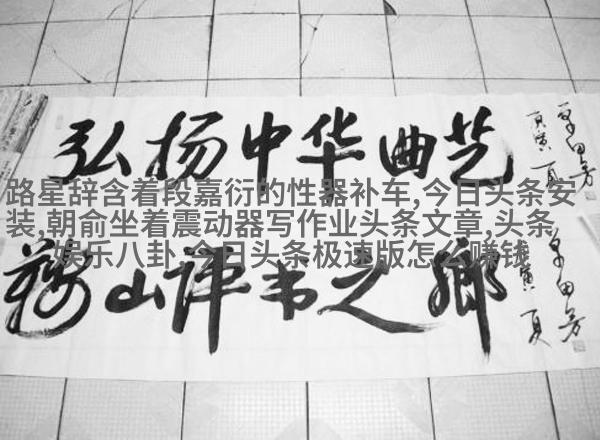 弘扬中华曲艺
单田芳
庚寅 夏
路星辞含着段嘉衍的性器补车,今日头条安
装,朝俞坐着震动器写作业头条文章,头条
娱乐八卦,今日头条极速版怎么赚钱
鞍山评书之鄉
单田芳
寅 夏